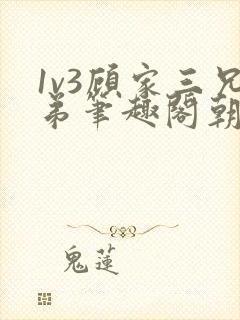 1v3顾家三兄
弟笔趣阁朝
鬼莲